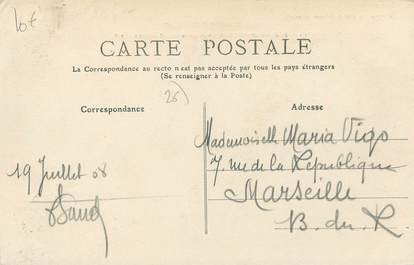 10€
CARTE POSTALE
La Correspondance au recto n'est pas acceptée par tous les pays étrangers
(Se renseigner à la Poste)
Correspondance
26)
Adresse
Mademoiselle Maria Vigo
7, rue de la République
Marseille
B. du R.
19 Juillet 08